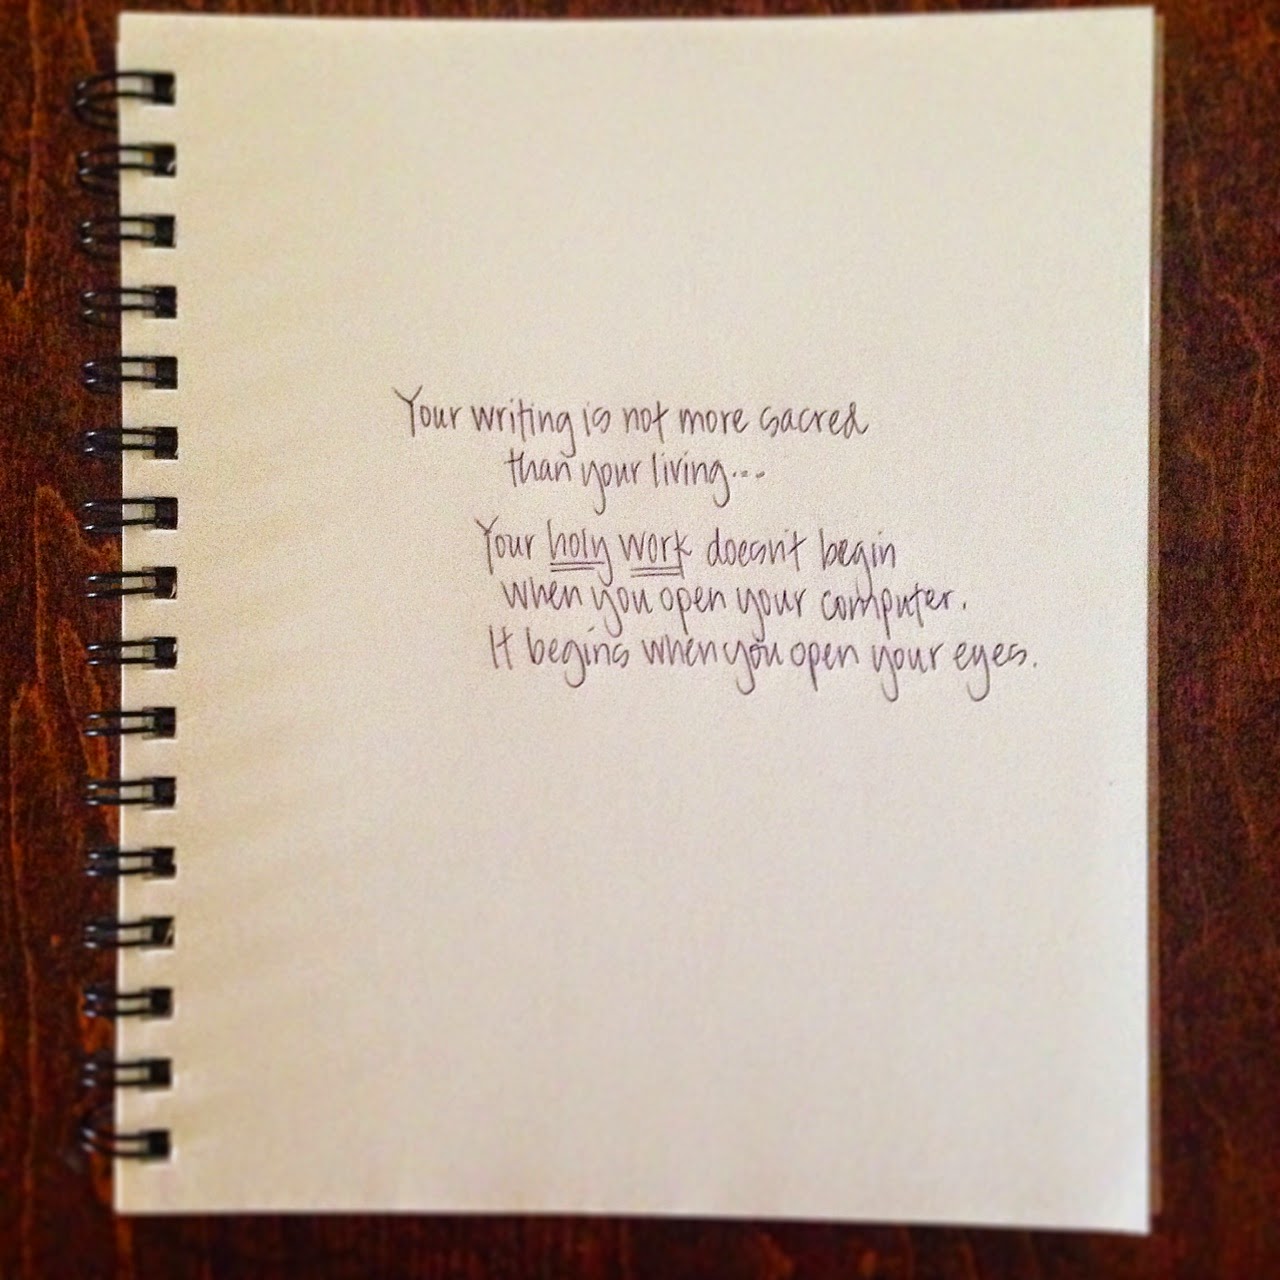 Your writing is not more sacred
than your living...
Your holy work doesn't begin
when you open your computer.
It begins when you open your eyes.